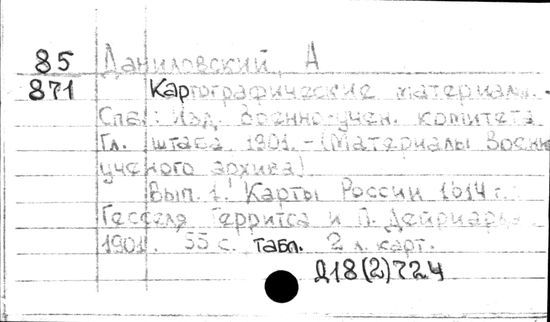 85 Даниловский, А
871 Картографические материалы. -
Спб.: Изд. Военно-учен. комитета
Гл. штаба, 1901. - (Материалы Военно-
ученого архива)
Вып. 1: Карты России 1614 г.
Гесселя Герритса и П.
1901. 55 с. Табл. 2 л. карт.
Д18(2)724